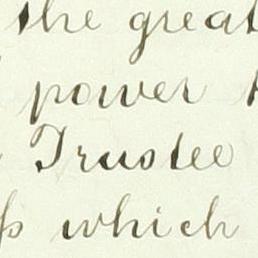 the great
power
Trustee
which